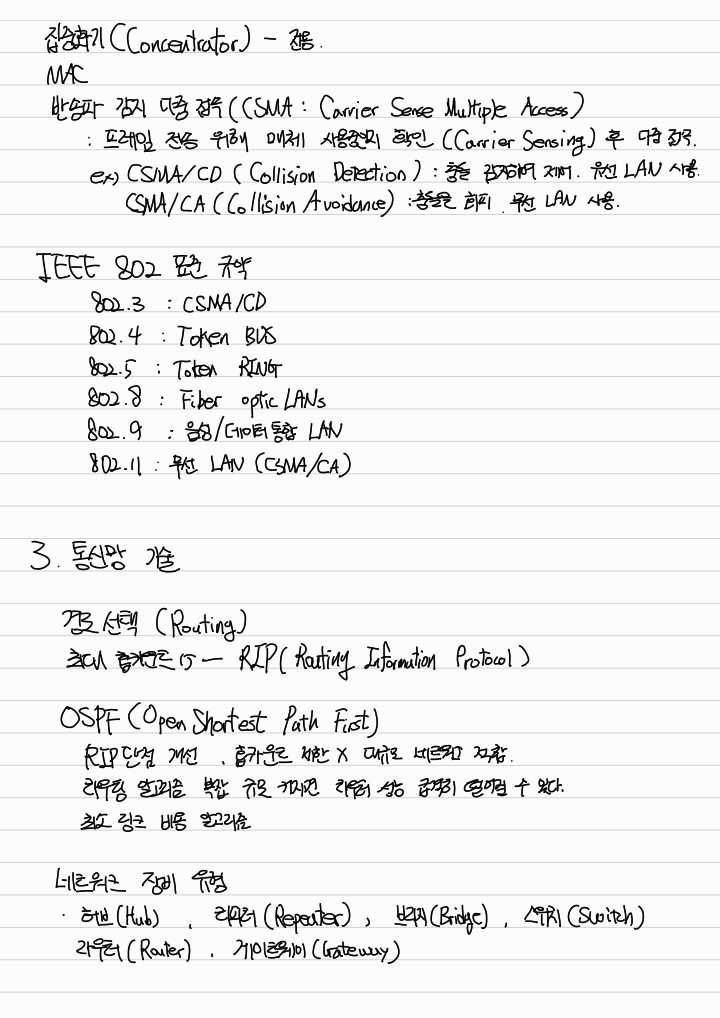 집중화기 (Concentrator) - 전용.
MAC
반송파 감지 다중 접속 (CSMA : Carrier Sense Multiple Access)
: 프레임 전송 위해 매체 사용중인지 확인 (Carrier Sensing) 후 다중 접속.
ex) CSMA/CD (Collision Detection) : 충돌 감지하여 제어. 유선 LAN 사용.
CSMA/CA (Collision Avoidance) : 충돌을 회피. 무선 LAN 사용.
IEEE 802 표준 규약
802.3 : CSMA/CD
802.4 : Token BUS
802.5 : Token RING
802.8 : Fiber optic LANs
802.9 : 음성/데이터 통합 LAN
802.11 : 무선 LAN (CSMA/CA)
3. 통신망 기술
경로 선택 (Routing)
최대 홉카운트 15 - RIP (Routing Information Protocol)
OSPF (Open Shortest Path First)
RIP 단점 개선 . 홉카운트 제한 X 대규모 네트워크 적합.
라우팅 알고리즘 복잡 규모 커지면 라우터 성능 급격히 떨어질 수 있다.
최소 링크 비용 알고리즘
네트워크 장비 유형
· 허브 (Hub) , 리피터 (Repeater) , 브리지 (Bridge) , 스위치 (Switch)
라우터 (Router) , 게이트웨이 (Gateway)